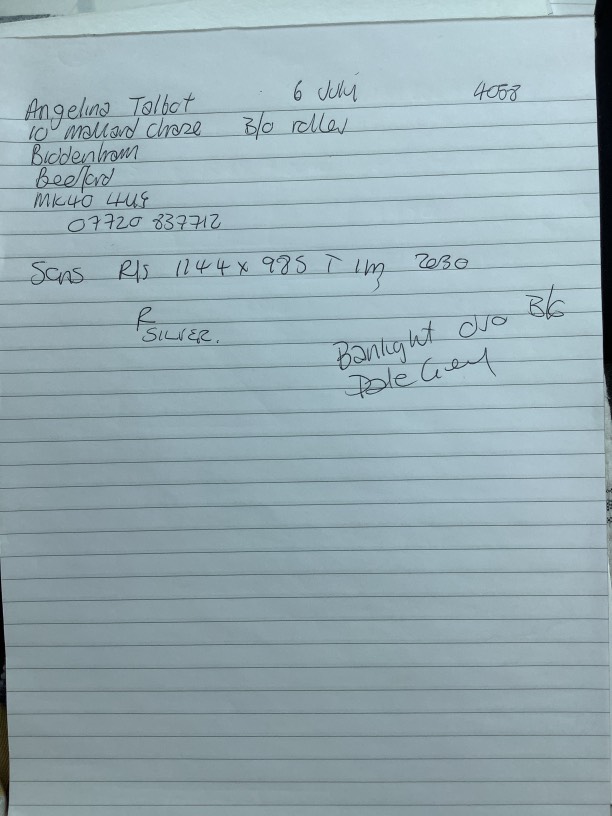 Angelina Talbot 6 July 4058
10 Mallard Chase B/O roller
Biddenham
Bedford
MK40 4US
07720 837712
Sens R/s 1144 x 985 T 1m 2030
R
SILVER.
Banlight duo B/O
Pale Grey